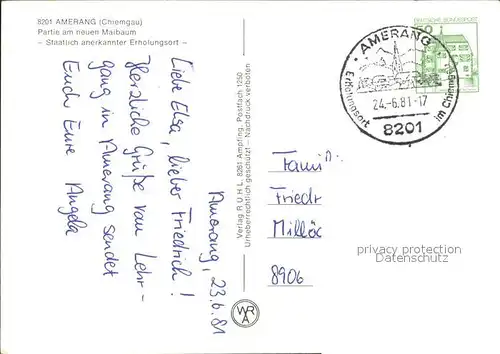 8201 AMERANG (Chiemgau)
Partie am neuen Maibaum
– Staatlich anerkannter Erholungsort –
Amerang, 23.6.81
Liebe Elsa, lieber Friedrich!
Herzliche Grüße vom Lehr-
gang in Amerang sendet
Euch Eure Angela
Verlag R U H L, 8261 Ampfing, Postfach 1250
Urheberrechtlich geschützt! – Nachdruck verboten
WR
A
DEUTSCHE BUNDESPOST
AMERANG
Erholungsort im Chiemgau
24.-6.81-17
8201
Fami
Friedr
8906
privacy protection
Datenschutz